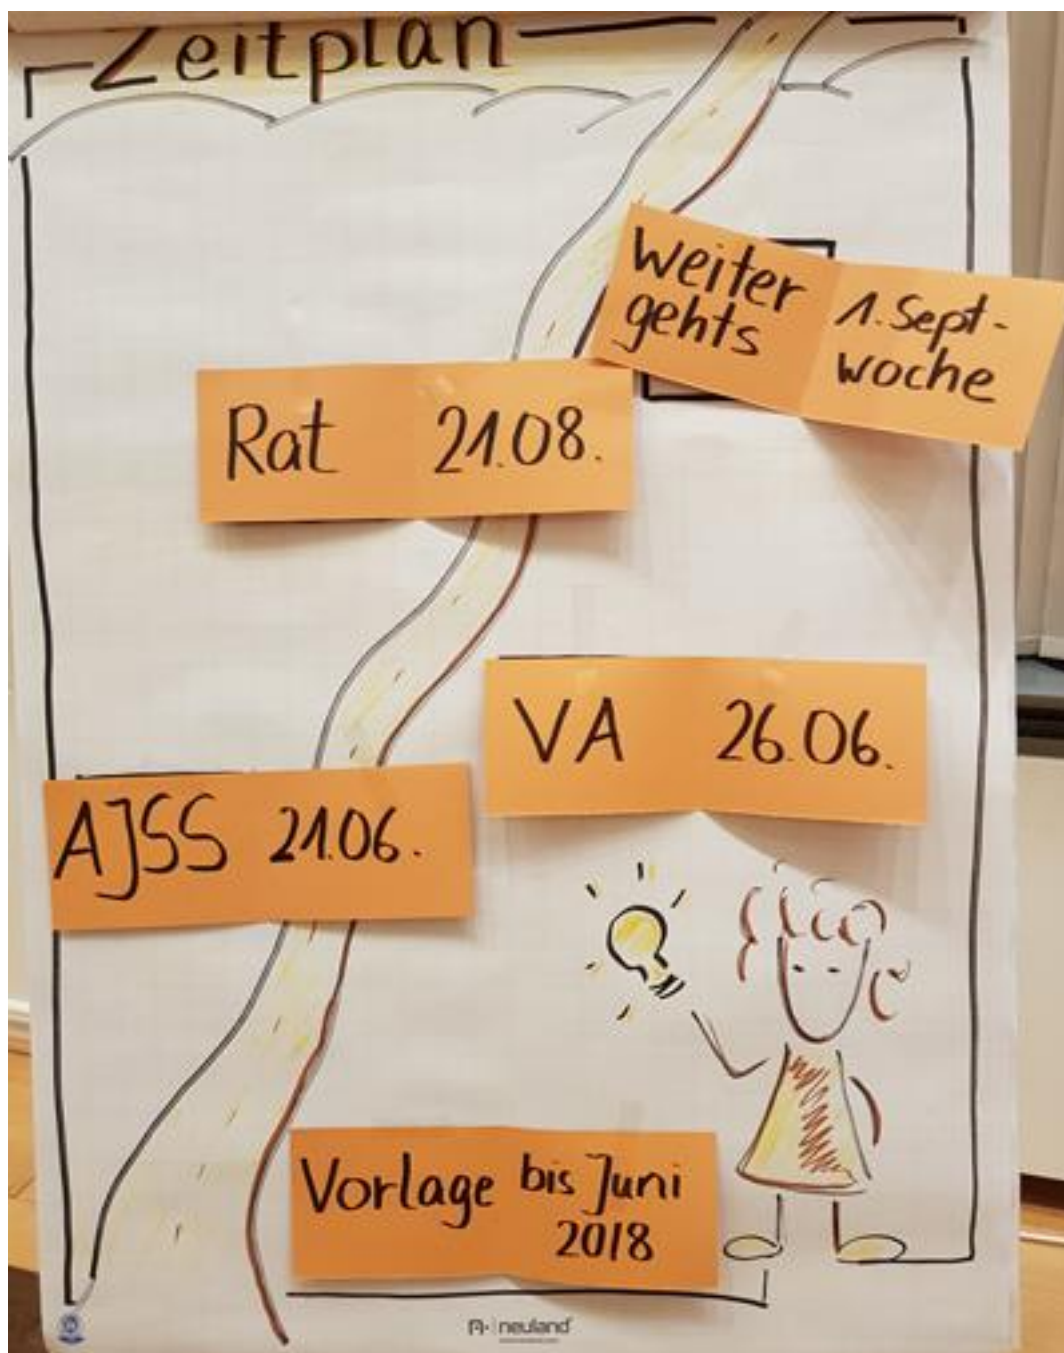 Zeitplan
Weiter
gehts
1. Sept-
woche
Rat 21.08.
VA 26.06.
AJSS 21.06.
Vorlage bis Juni
2018
neuland